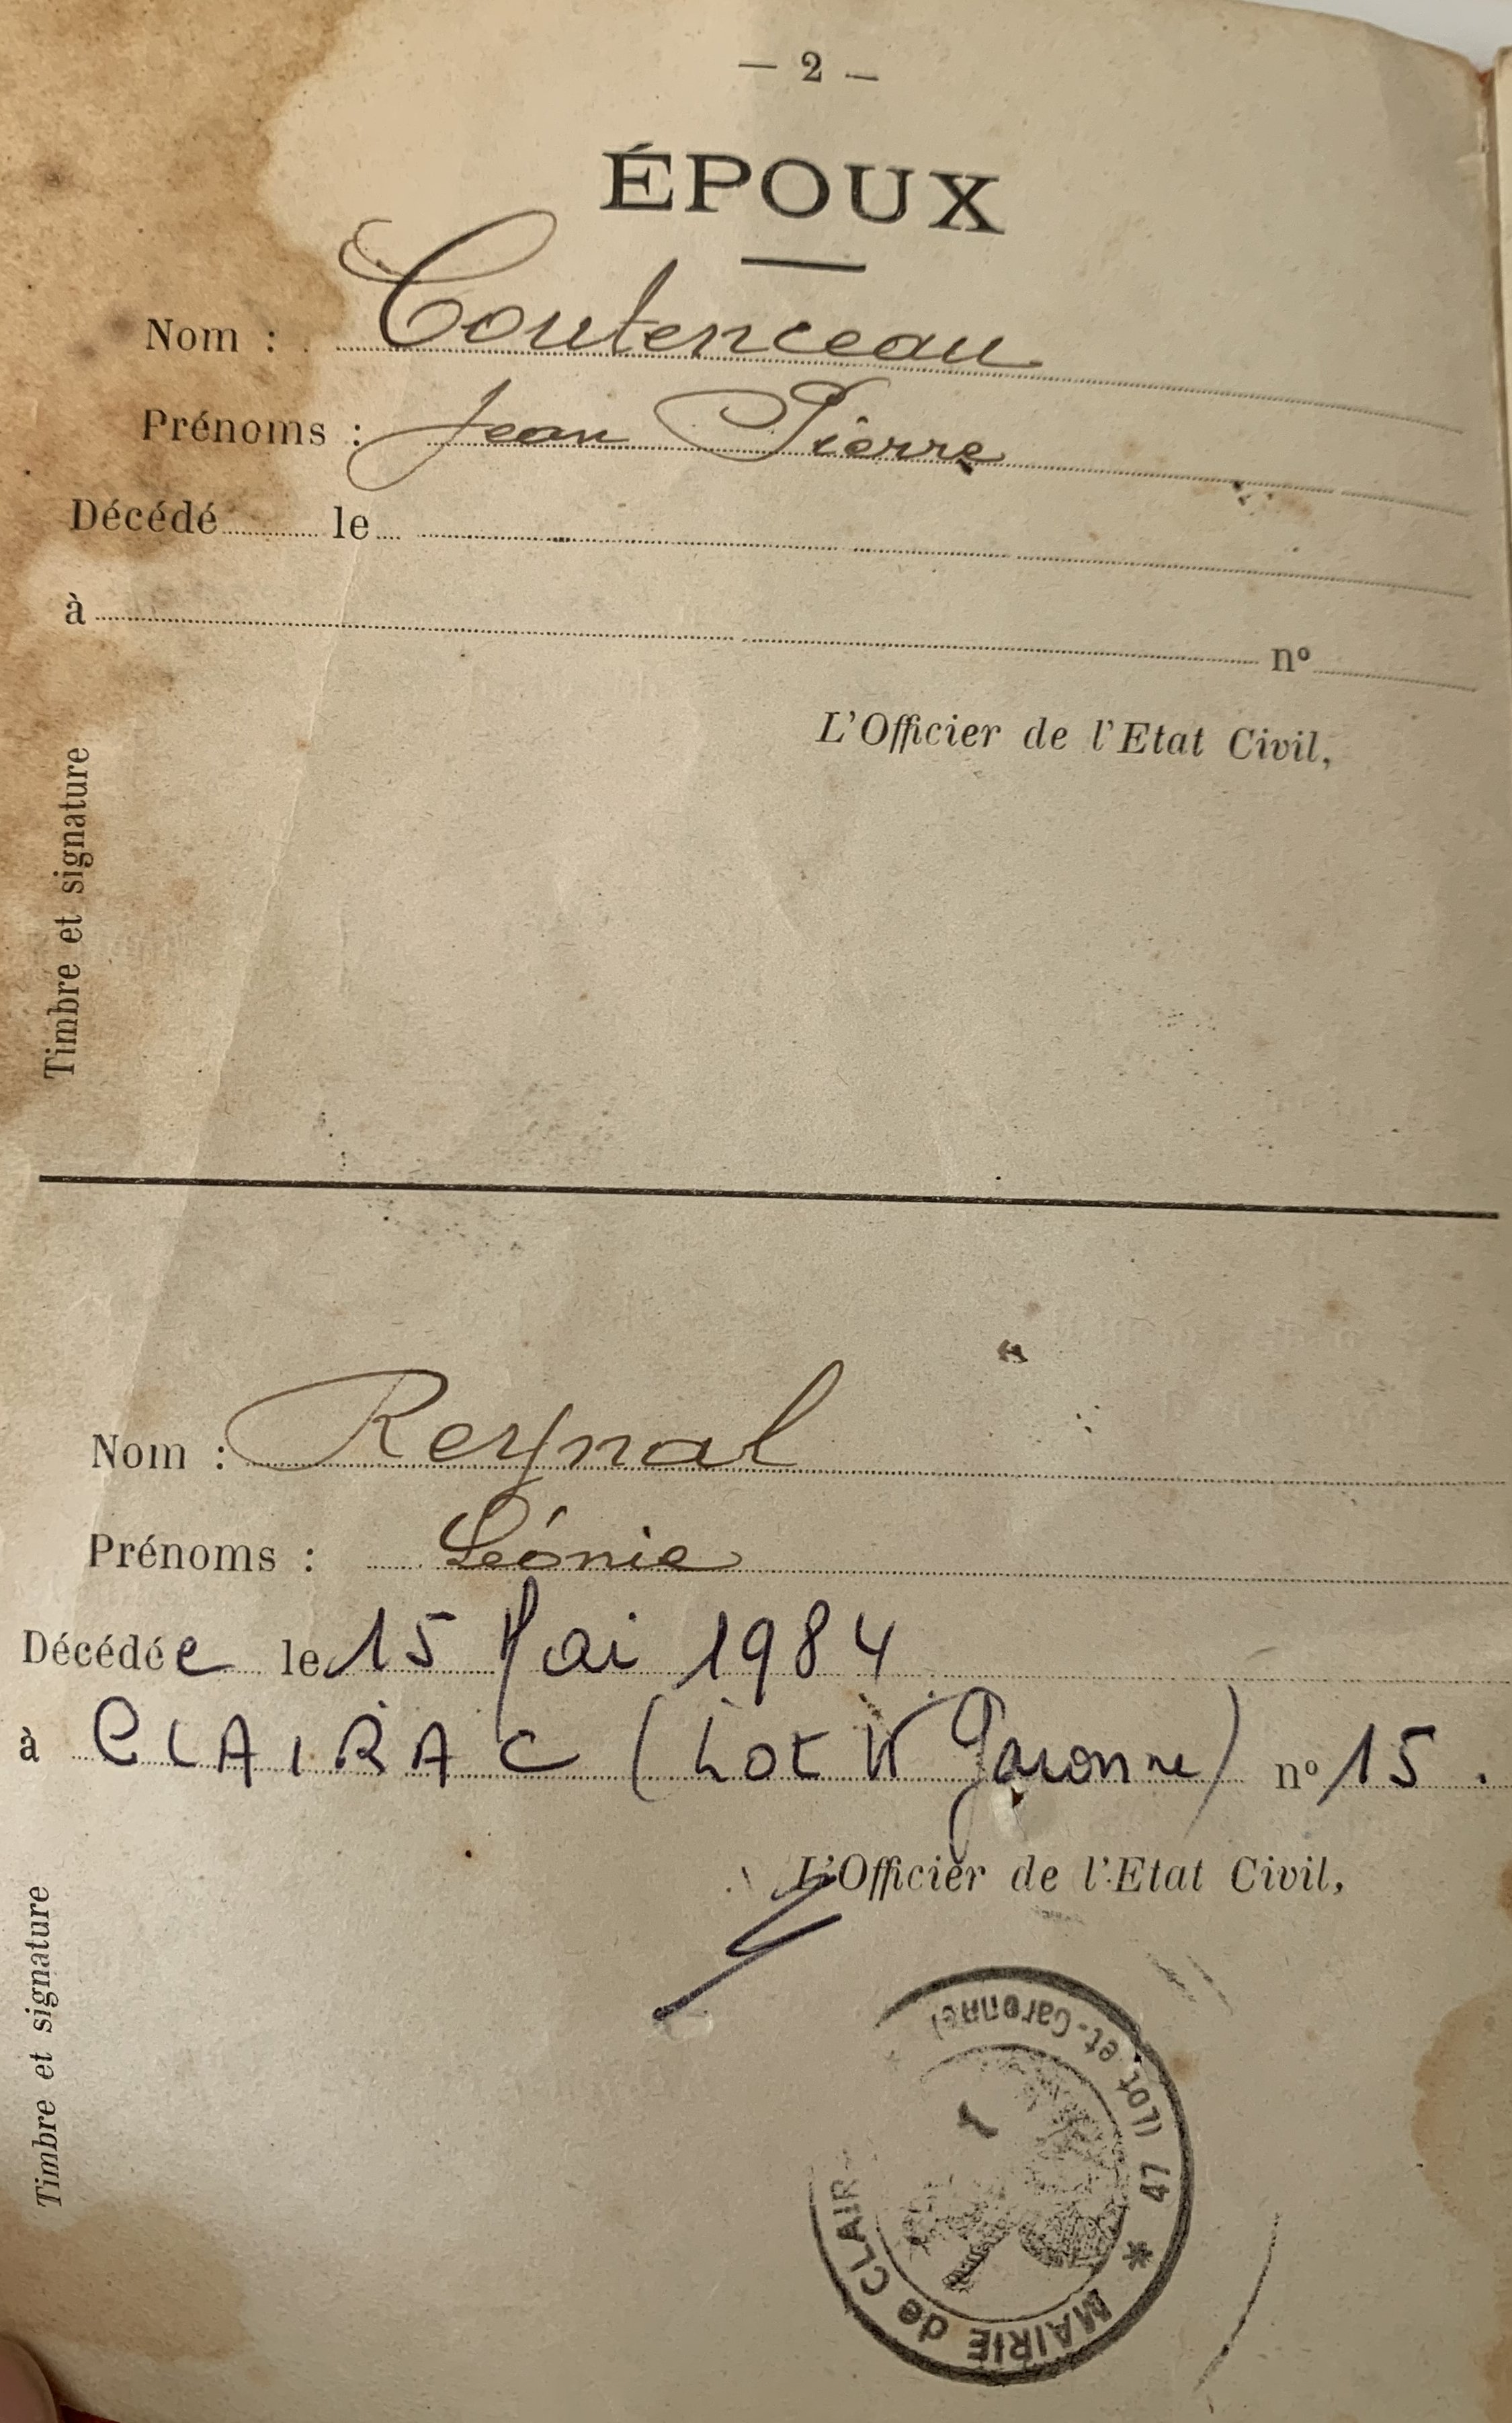 — 2 —
ÉPOUX
Nom : Coutenceau
Prénoms : Jean Pierre
Décédé le
à n°
L'Officier de l'Etat Civil,
Timbre et signature
Nom : Reynal
Prénoms : Léonie
Décédée le 15 Mai 1984
à CLAIRAC (Lot et Garonne) n° 15.
L'Officier de l'Etat Civil,
Timbre et signature
MAIRIE de CLAIR
* 47 (Lot-et-Garonne)